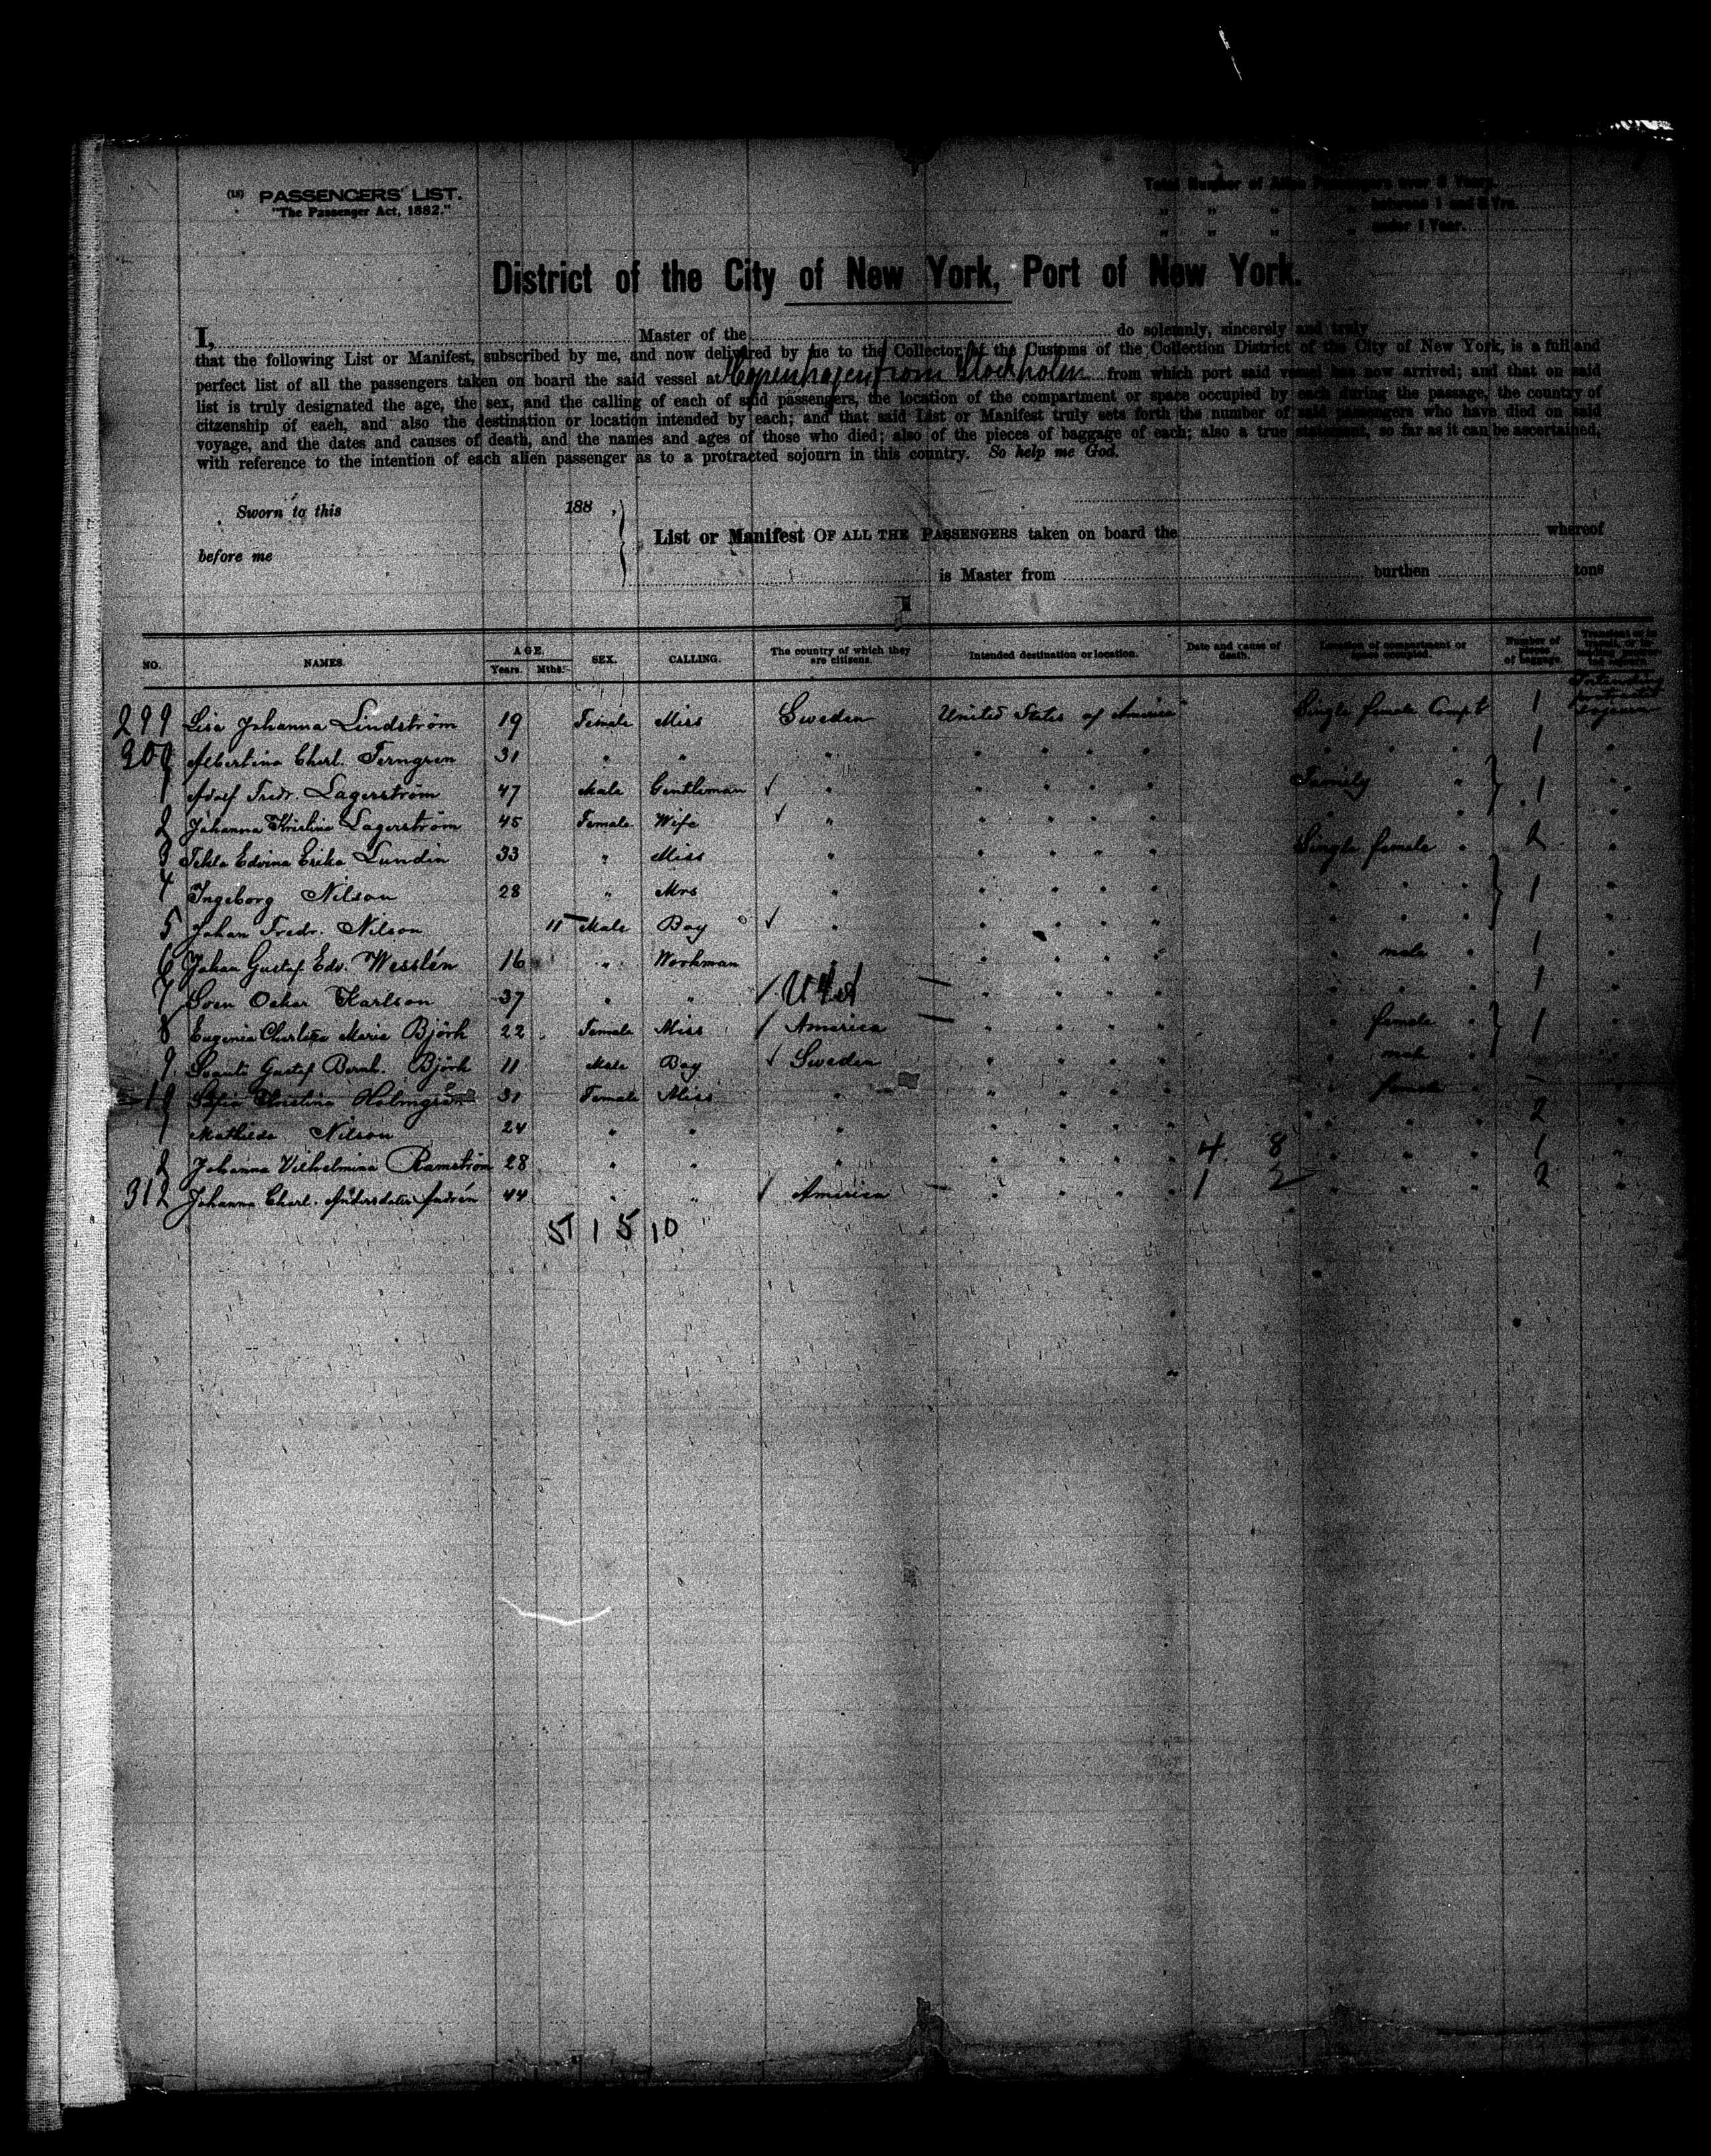 (18) PASSENGERS' LIST.
"The Passenger Act, 1882."
Total Number of Alien Passengers over 8 Years.
„ „ „ „ between 1 and 8 Yrs.
„ „ „ „ under 1 Year.
District of the City of New York, Port of New York.
I, Master of the do solemnly, sincerely and truly
that the following List or Manifest, subscribed by me, and now delivered by me to the Collector of the Customs of the Collection District of the City of New York, is a full and
perfect list of all the passengers taken on board the said vessel at Copenhagen from Stockholm from which port said vessel has now arrived; and that on said
list is truly designated the age, the sex, and the calling of each of said passengers, the location of the compartment or space occupied by each during the passage, the country of
citzenship of each, and also the destination or location intended by each; and that said List or Manifest truly sets forth the number of said passengers who have died on said
voyage, and the dates and causes of death, and the names and ages of those who died; also of the pieces of baggage of each; also a true statement, so far as it can be ascertained,
with reference to the intention of each alien passenger as to a protracted sojourn in this country. So help me God.
Sworn to this 188 ,
before me
List or Manifest OF ALL THE PASSENGERS taken on board the whereof
is Master from burthen tons
NO. NAMES. AGE. Years. Mths. SEX. CALLING. The country of which they are citizens. Intended destination or location. Date and cause of death. Location of compartment or space occupied. Number of pieces of baggage.
299 Lisa Johanna Lindström 19 Female Miss Sweden United States of America Single female Compt 1 Intending protracted sojourn
300 Albertina Charl. Ferngren 31 " " " " " " " " " " 1 "
1 Adolf Fredr. Lagerström 47 Male Gentleman ✓ " " " " " Family " } 1 "
2 Johanna Kristina Lagerström 45 Female Wife ✓ " " " " " " " "
3 Tekla Edvina Erika Lundin 33 " Miss " " " " " Single female " 2 "
4 Ingeborg Nilson 28 " Mrs " " " " " " " " } 1 "
5 Johan Fredr. Nilson 11 Male Boy ✓ " " " " " " " " "
6 Johan Gustaf Edv. Wesslén 16 " Workman " " " " " male " 1 "
7 Sven Oskar Karlson 37 " " / U S A — " " " " " " " 1 "
8 Eugenia Charlotta Maria Björk 22 Female Miss / America — " " " " " female " } 1 "
9 Gustaf Bernh. Björk 11 Male Boy ✓ Sweden " " " " " male "
10 Sofia Christina Holmgren 31 Female Miss " " " " " " female " — "
1 Mathilda Nilson 24 " " " " " " " " " " 2 "
2 Johanna Vilhelmina Ramström 28 " " " " " " " 4 8 " " " 1 "
312 Johanna Charl. Andersdotter Andrén 44 " " / America — " " " " 1 2 " " " 2 "
51 1 5 10